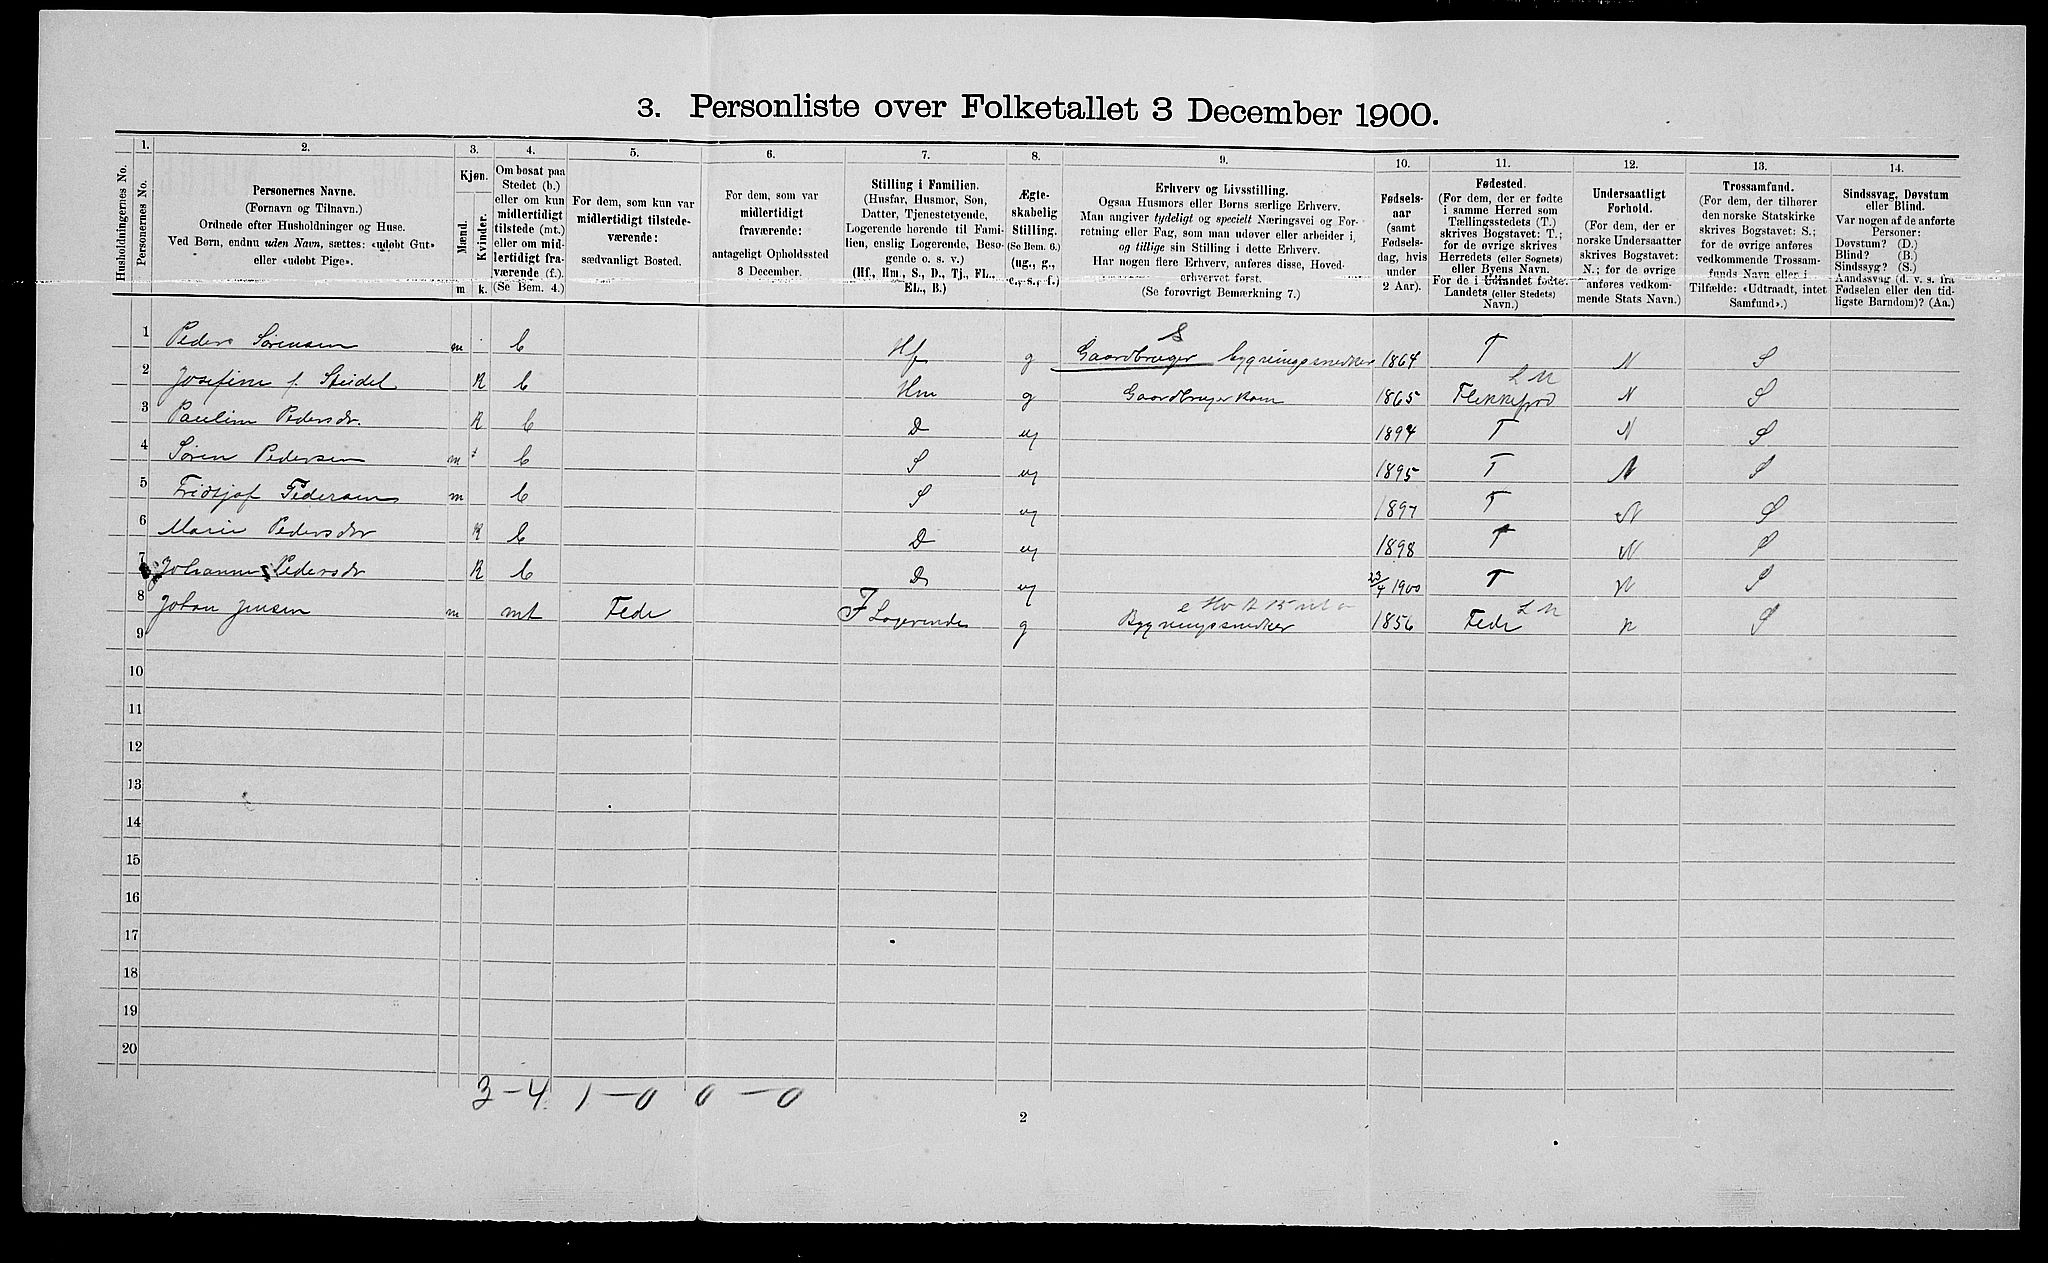 3. Personliste over Folketallet 3 December 1900.
1. 2. 3. 4. 5. 6. 7. 8. 9. 10. 11. 12. 13. 14.
Husholdningernes No.
Personernes No.
Personernes Navne.
(Fornavn og Tilnavn.)
Ordnede efter Husholdninger og Huse.
Ved Børn, endnu uden Navn, sættes: «udøbt Gut»
eller «udøbt Pige».
Kjøn.
Mænd.
Kvinder.
m k.
Om bosat paa
Stedet (b.)
eller om kun
midlertidigt
tilstede (mt.)
eller om mid-
lertidigt fra-
værende (f.).
(Se Bem. 4.)
For dem, som kun var
midlertidigt tilstede-
værende:
sædvanligt Bosted.
For dem, som var
midlertidigt
fraværende:
antageligt Opholdssted
3 December.
Stilling i Familien.
(Husfar, Husmor, Søn,
Datter, Tjenestetyende,
Logerende hørende til Fami-
lien, enslig Logerende, Besø-
gende o. s. v.)
(Hf., Hm., S., D., Tj., FL.,
EL., B.)
Ægte-
skabelig
Stilling.
(Se Bem. 6.)
(ug., g.,
e., s., f.)
Erhverv og Livsstilling.
Ogsaa Husmors eller Børns særlige Erhverv.
Man angiver tydeligt og specielt Næringsvei og For-
retning eller Fag, som man udøver eller arbeider i,
og tillige sin Stilling i dette Erhverv.
Har nogen flere Erhverv, anføres disse, Hoved-
erhvervet først.
(Se forøvrigt Bemærkning 7.)
Fødsels-
aar
(samt
Fødsels-
dag, hvis
under
2 Aar).
Fødested.
(For dem, der er fødte
i samme Herred som
Tællingsstedets (T.)
skrives Bogstavet: T.;
for de øvrige skrives
Herredets (eller Sognets)
eller Byens Navn.
For de i Udlandet fødte:
Landets (eller Stedets)
Navn.)
Undersaatligt
Forhold.
(For dem, der er
norske Undersaatter
skrives Bogstavet:
N.; for de øvrige
anføres vedkom-
mende Stats Navn.)
Trossamfund.
(For dem, der tilhører
den norske Statskirke
skrives Bogstavet: S.;
for de øvrige anføres
vedkommende Trossam-
funds Navn eller i
Tilfælde: «Udtraadt, intet
Samfund».)
Sindssvag, Døvstum
eller Blind.
Var nogen af de anførte
Personer:
Døvstum? (D.)
Blind? (B.)
Sindssyg? (S.)
Aandssvag (d. v. s. fra
Fødselen eller den tid-
ligste Barndom)? (Aa.)
S
1 Peder Sørensen m b Hf g Gaardbruger bygningssnedker 1864 T N S
L M
2 Josefine f. Seidel k b Hm g Gaardbrugerkone 1865 Flekkefjord N S
3 Pauline Pedersdr. k b D ug 1894 T N S
4 Søren Pedersen m b S ug 1895 T N S
5 Fridtjof Pedersen m b S ug 1897 T N S
6 Marie Pedersdr k b D ug 1898 T N S
7 Johanne Pedersdr k b D ug 23/4 1900 T N S
L M
8 Johan Jensen m mt Fede F Logerende g Bygningssnedker 1856 Fede N S
9
10
11
12
13
14
15
16
17
18
19
20
3-4 1-0 0-0
2